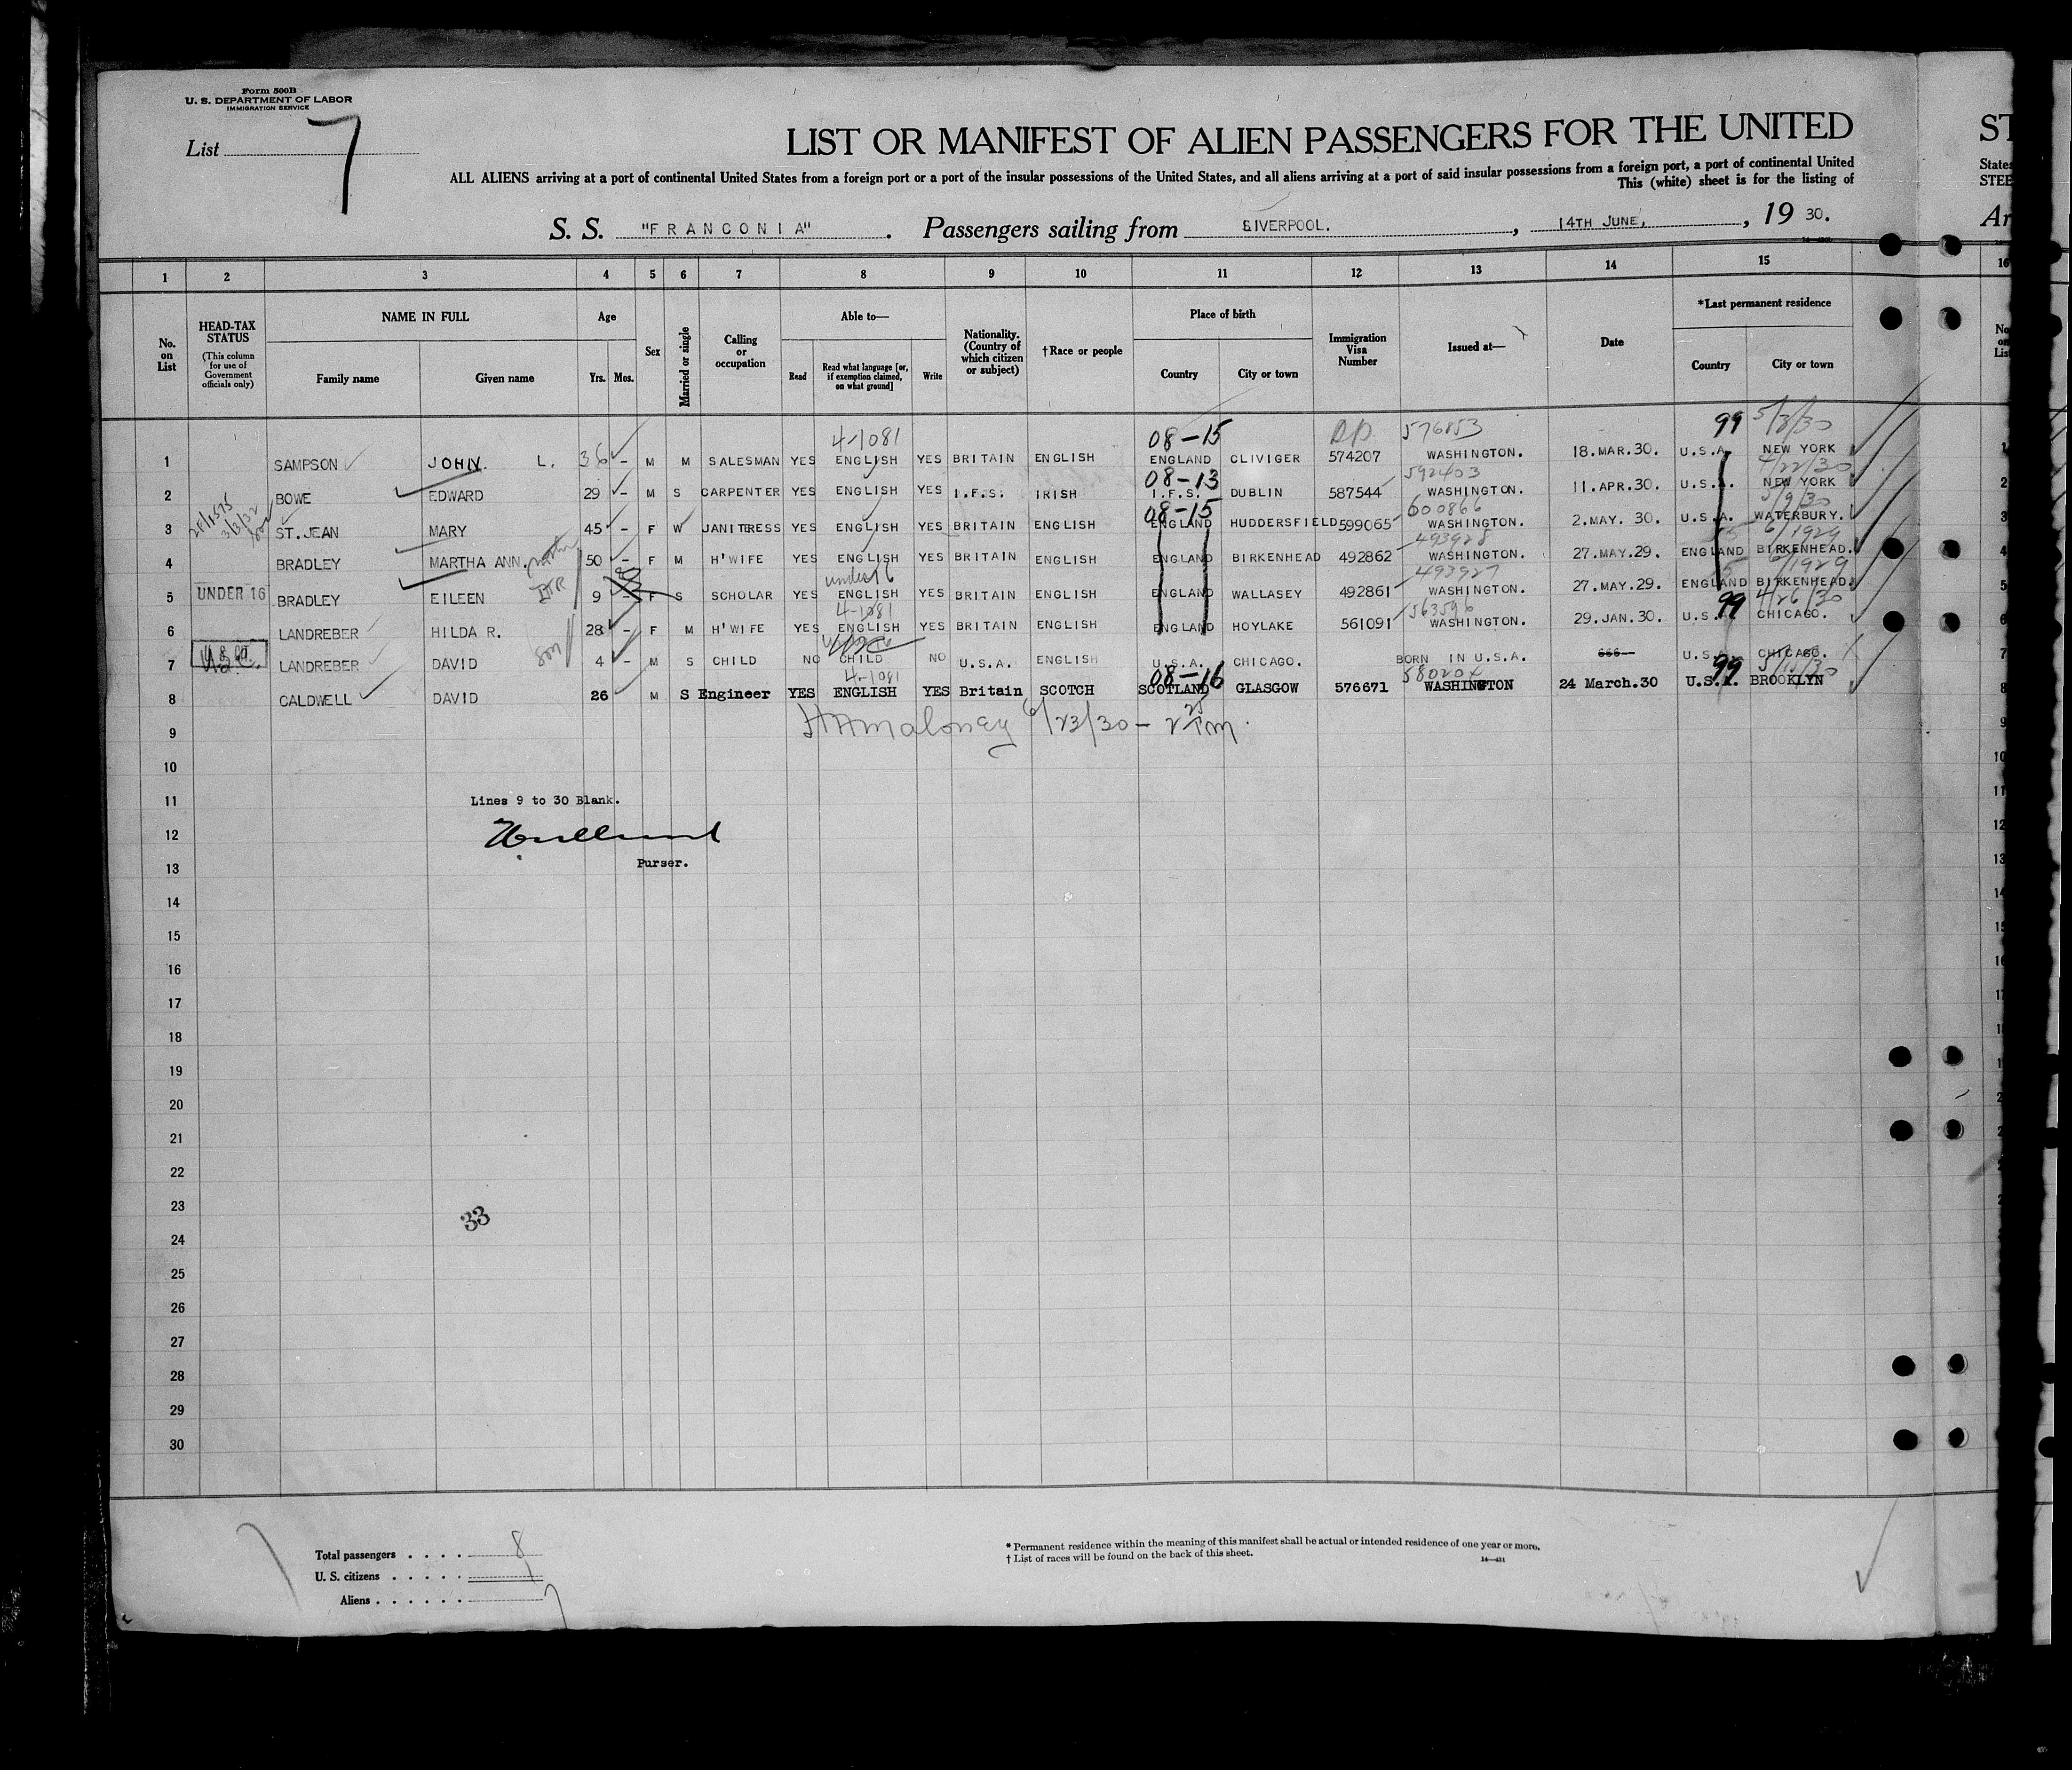 Form 500B
U. S. DEPARTMENT OF LABOR
IMMIGRATION SERVICE
List 7
LIST OR MANIFEST OF ALIEN PASSENGERS FOR THE UNITED
ST
ALL ALIENS arriving at a port of continental United States from a foreign port or a port of the insular possessions of the United States, and all aliens arriving at a port of said insular possessions from a foreign port, a port of continental United
States
This (white) sheet is for the listing of
STEE
S. S. "FRANCONIA". Passengers sailing from LIVERPOOL., 14TH JUNE, , 19 30.
Ar
1 2 3 4 5 6 7 8 9 10 11 12 13 14 15 16
No. on List
HEAD-TAX STATUS
(This column for use of Government officials only)
NAME IN FULL
Family name Given name
Age
Yrs. Mos.
Sex
Married or single
Calling or occupation
Able to—
Read Read what language [or, if exemption claimed, on what ground] Write
Nationality. (Country of which citizen or subject)
†Race or people
Place of birth
Country City or town
Immigration Visa Number
Issued at—
Date
*Last permanent residence
Country City or town
4-1081 08-15 576853 99 5/8/30
1 SAMPSON JOHN. L. 36 - M M SALESMAN YES ENGLISH YES BRITAIN ENGLISH ENGLAND CLIVIGER 574207 WASHINGTON. 18.MAR.30. U.S.A. NEW YORK 1
08-13 592403 4/22/30
2 BOWE EDWARD 29 - M S CARPENTER YES ENGLISH YES I.F.S. IRISH I.F.S. DUBLIN 587544 WASHINGTON. 11.APR.30. U.S.A. NEW YORK 2
08-15 600866 5/9/30
3 ST.JEAN MARY 45 - F W JANITRESS YES ENGLISH YES BRITAIN ENGLISH ENGLAND HUDDERSFIELD 599065 WASHINGTON. 2.MAY. 30. U.S.A. WATERBURY. 3
493928 6/1929
4 BRADLEY MARTHA ANN. 50 - F M H'WIFE YES ENGLISH YES BRITAIN ENGLISH ENGLAND BIRKENHEAD 492862 WASHINGTON. 27.MAY.29. ENGLAND BIRKENHEAD. 4
under 16 493927 6/1929
5 UNDER 16 BRADLEY EILEEN 9 - F S SCHOLAR YES ENGLISH YES BRITAIN ENGLISH ENGLAND WALLASEY 492861 WASHINGTON. 27.MAY.29. ENGLAND BIRKENHEAD. 5
4-1081 563596 99 4/26/30
6 LANDREBER HILDA R. 28 - F M H'WIFE YES ENGLISH YES BRITAIN ENGLISH ENGLAND HOYLAKE 561091 WASHINGTON. 29.JAN.30. U.S.A. CHICAGO. 6
son
7 LANDREBER DAVID 4 - M S CHILD NO CHILD NO U.S.A. ENGLISH U.S.A. CHICAGO. BORN IN U.S.A. U.S.A. CHICAGO. 7
4-1081 08-16 99
8 CALDWELL DAVID 26 M S Engineer YES ENGLISH YES Britain SCOTCH SCOTLAND GLASGOW 576671 WASHINGTON 24 March.30 U.S.A. BROOKLYN 8
9 Maloney 6/23/30 9
10 10
11 Lines 9 to 30 Blank. 11
12 12
Purser.
13 13
14 14
15 15
16 16
17
18
19
20
21
22
23
33
24
25
26
27
28
29
30
Total passengers . . . . 8
U. S. citizens . . . . .
Aliens . . . . . . 7
* Permanent residence within the meaning of this manifest shall be actual or intended residence of one year or more.
† List of races will be found on the back of this sheet.